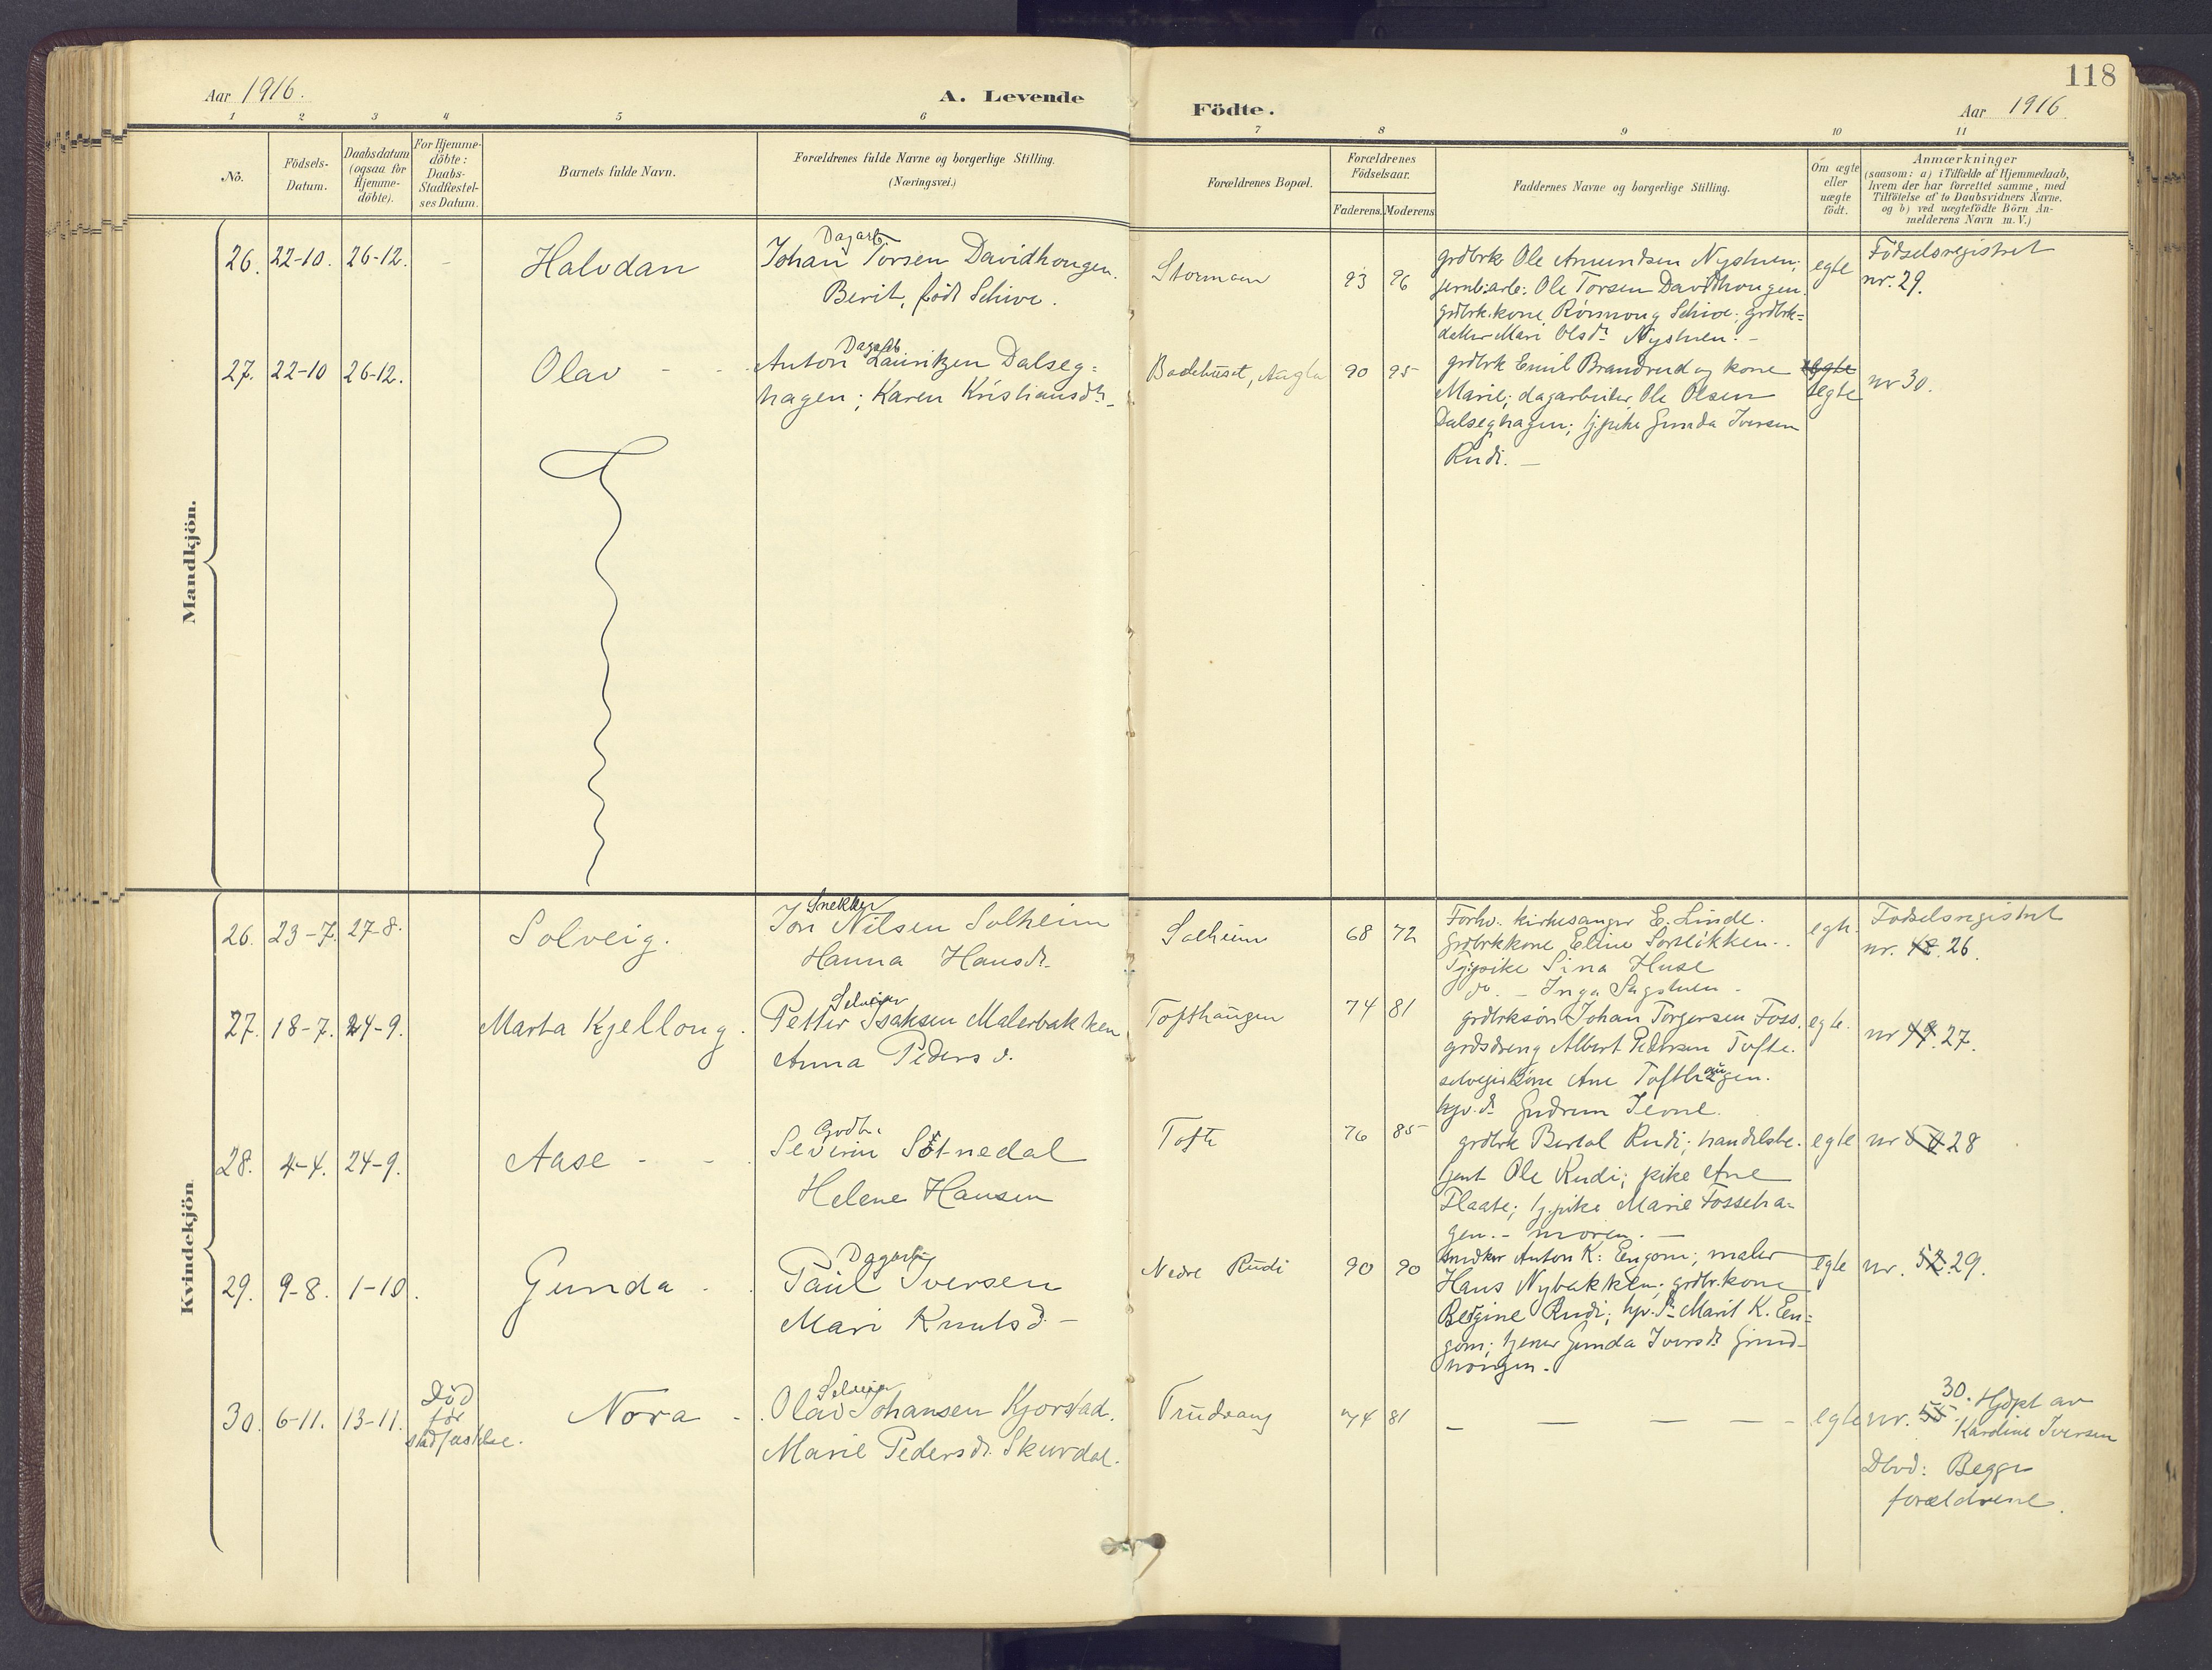 118
Aar 1916.
A. Levende
Födte.
Aar 1916
1 2 3 4 5 6 7 8 9 10 11
No.
Födsels-
Datum.
Daabsdatum
(ogsaa for
Hjemme-
döbte).
For Hjemme-
döbte:
Daabs-
Stadfæstel-
ses Datum.
Barnets fulde Navn.
Forældrenes fulde Navne og borgerlige Stilling.
(Næringsvei.)
Forældrenes Bopæl.
Forældrenes
Födselsaar.
Faderens. Moderens
Faddernes Navne og borgerlige Stilling.
Om ægte
eller
uægte
födt.
Anmærkninger
(saasom: a) i Tilfælde af Hjemmedaab,
hvem der har forrettet samme, med
Tilföielse af to Daabsvidners Navne.
og b) ved uægtefödte Börn An-
melderens Navn m. V.)
Mandkjön.
26. 22-10. 26-12.
Halvdan
Dagarb
Johan Torsen Davidhougen.
Berit, født Schive.
Stormoen
93 96
grdbrk Ole Amundsen Nystuen;
jernb:arb: Ole Torsen Davidhougen.
grdbrk.kone Rønnoug Schive; grdbrk=
datter Mari Olsdr Nystuen. -
egte
Fødselsregistret
nr. 29.
27. 22-10 26-12.
Olav - -
Dagarb
Anton Lauritzen Dalseg=
hagen; Karen Kristiansdtr -
Badehuset, Augla
90 95
grdbrk Emil Brandvud og kone
Marie; dagarbeider Ole Olsen
Dalseghagen; tj.pike Gunda Iversen
Rudi. -
egte
nr 30.
Kvindekjön
26. 23-7. 27-8.
Solveig.
Snekker
Jon Nilsen Solheim
Hanna Hansdr.
Solheim
68 72
Forhv. kirkesanger E. Linde.
Grdbrkkone Eline Sorsløkken..
Tj:pike Sina Huse
do. - Inga Sagstuen -
egte.
Fødselsregistret
nr. 48. 26.
27. 18-7. 24-9.
Marta Kjellong.
Selveier
Petter Isaksen Malerbakken
Anna Pedersd.
Tofthaugen
74 81
grdbrksøn Johan Torgersen Foss.
grdsdreng Albert Pedersen Tofte.
selveierkone Ane Tofthaugen.
hjv.d. Gudrun Teone.
egte.
nr 49. 27.
28. 4-4. 24-9.
Aase - -
Godbr
Severin Sötnedal
Helene Hansen
Tofte
76 85
grdbrk Bertol Rudi; handelsbe.
tjent Ole Rudi; pike Ane
Flaate; tj.pike Marie Fosseha=
gen. - moren. -
egte
nr 28
29. 9-8. 1-10.
Gunda -
Dagarb
Paul Iversen
Mari Knutsd. -
Nedre Rudi
90 90
snedker Anton K: Engom; maler
Hans Nybakken; grdbr.kone
Bergine Rudi; hjv.dr Marit K. Een=
gom; tjener Gunda Iversdr Grind-
hougen.
egte
nr. 52. 29.
30. 6-11. 13-11.
Død
før
stadfæstelse.
Nora -
Selveier
Olav Johansen Kjorstad.
Marie Pedersdr. Skurdal.
Trudvang
74 81
- - - - -
egte
nr. 55. 30. Hjdpt av
Karoline Iversen
Dbvd: Begge
forældrene.